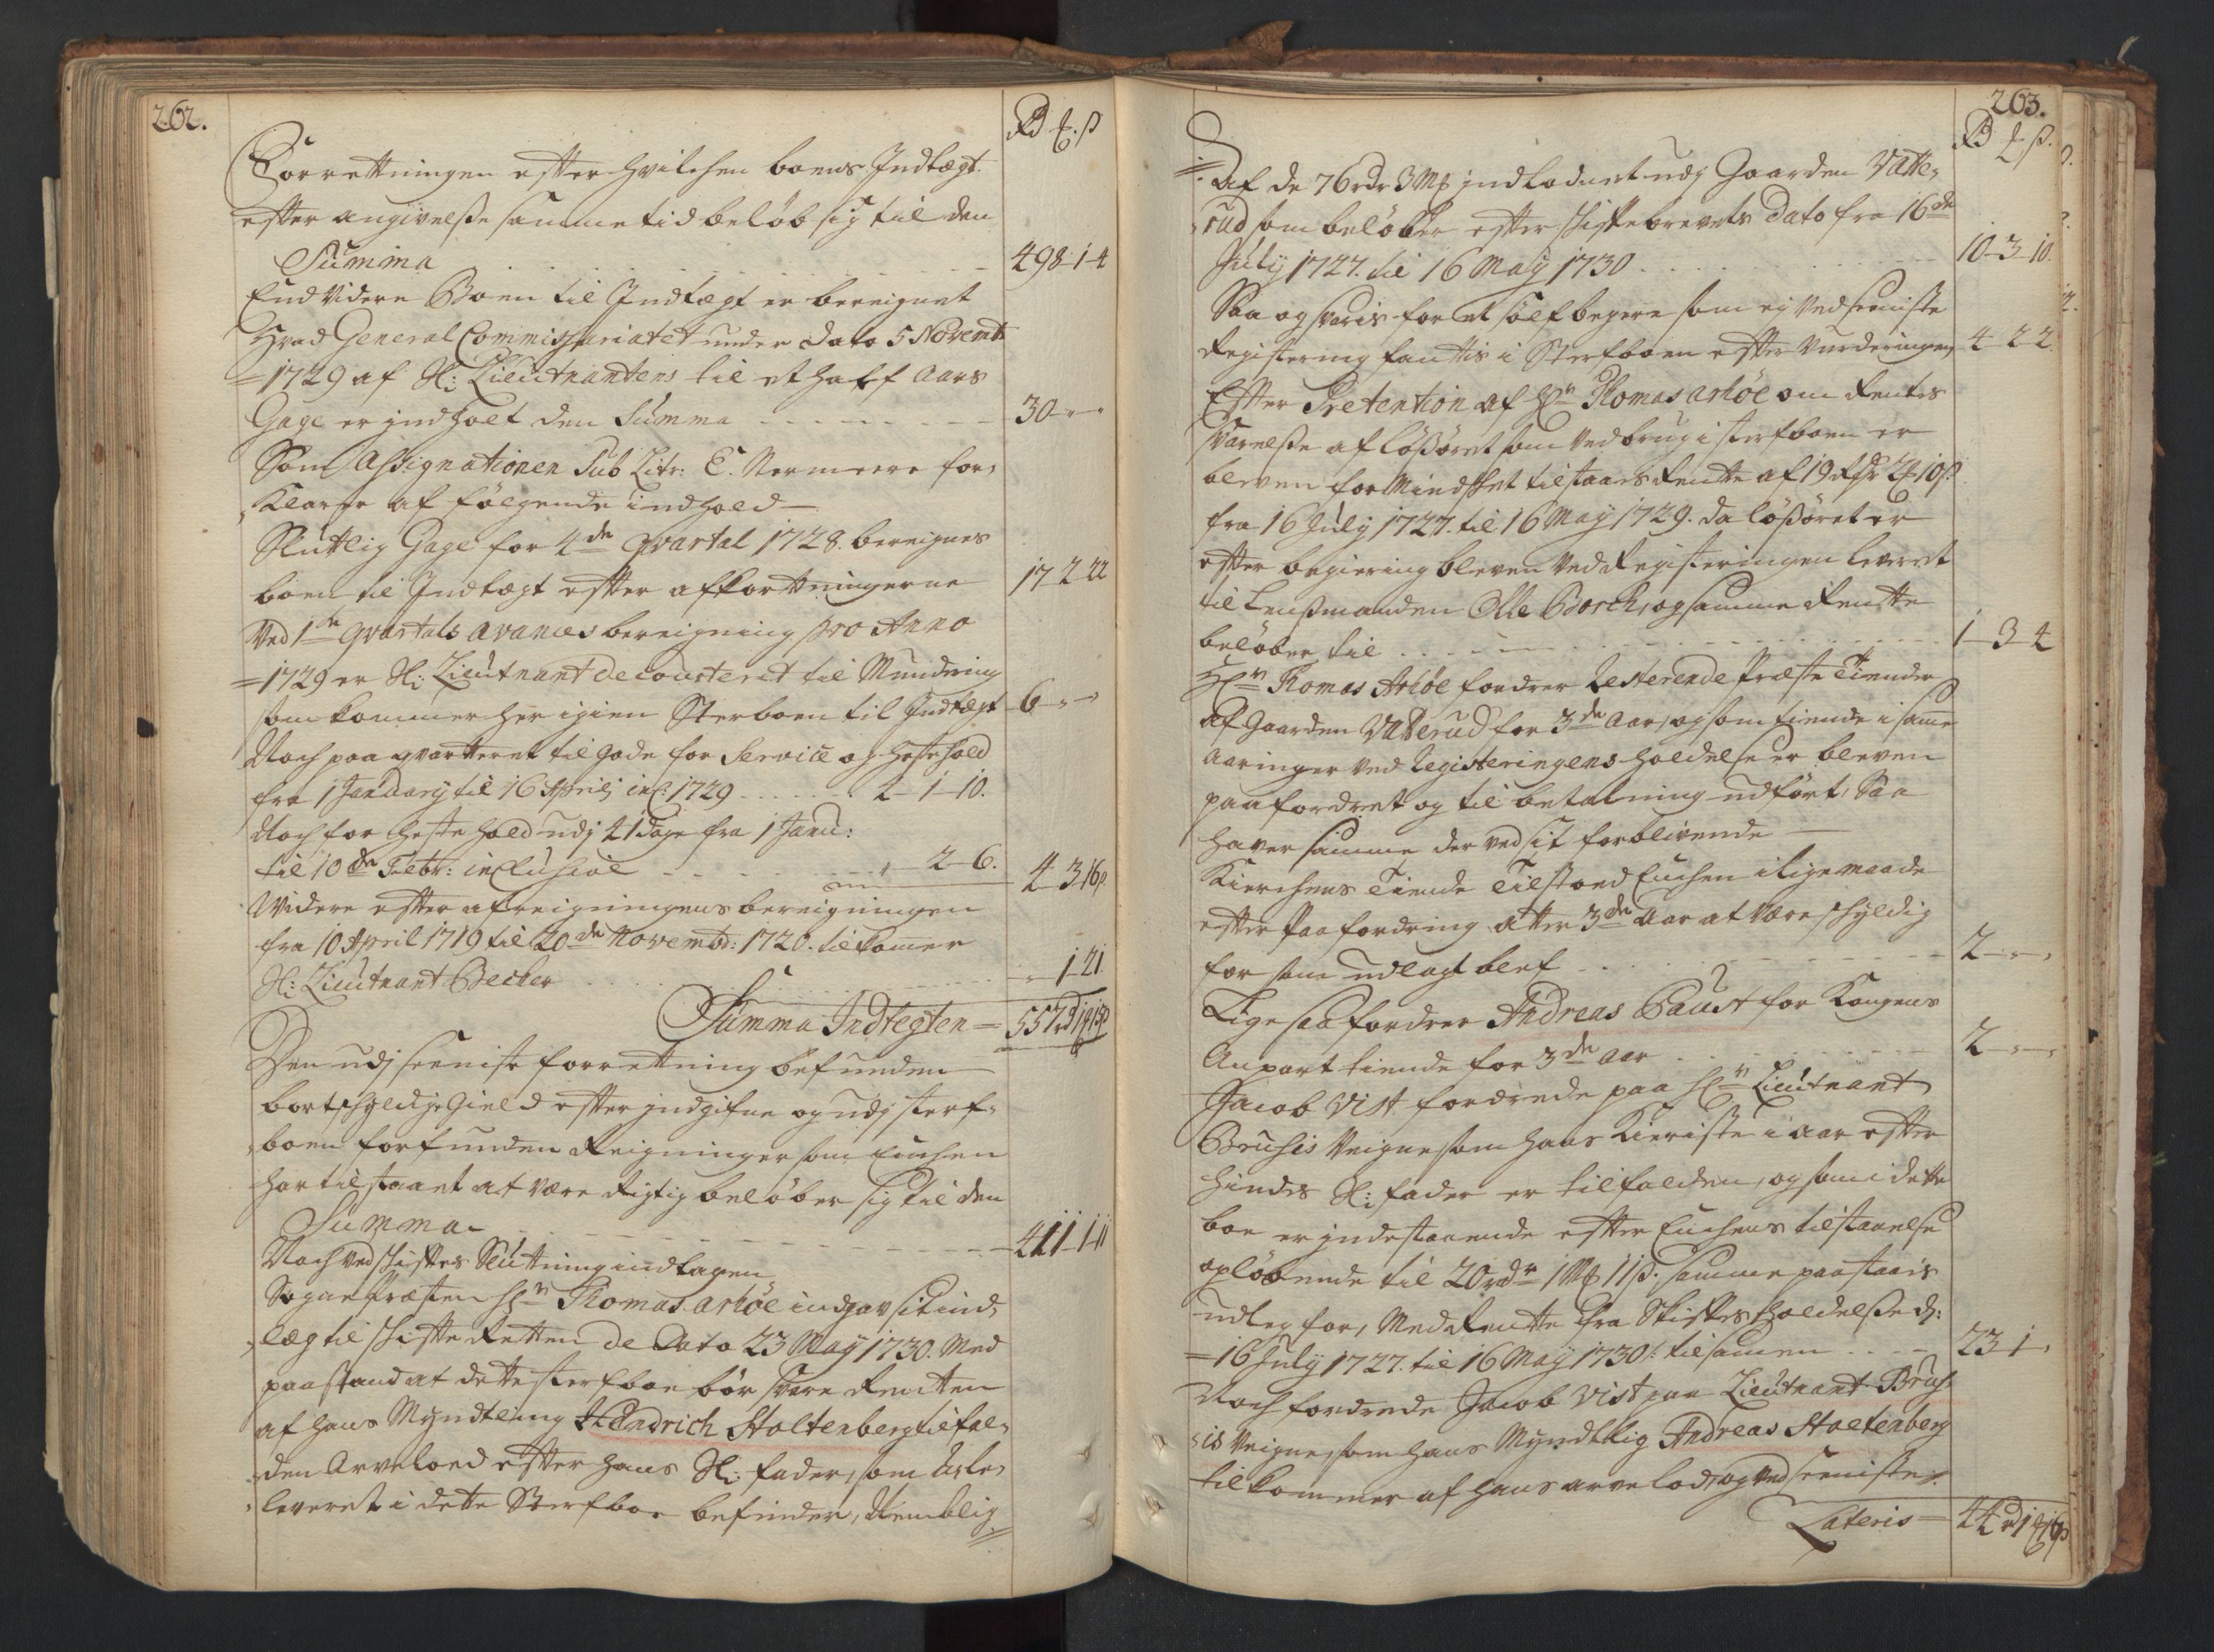 262.
Rd ₰. ß
Forrettningen efter hvilchen boens Indtægt
efter angivelße samme tid beløb sig til den
Summa 498-1-4
End Videre Boen til Indtægt er bereignet
Hvad General Commissariatet under Dato 5 Novemb
=1729 af Sl: Lieutnantens til et half Aars
Gage er indholt den Summa 30-"-"
Som Assignationen Sub Litr: C. Nermeere for-
klarer af følgende indhold
Slutlig Gage for 4de Qvartal 1728. bereignes
boen til Indtægt efter affkortningerne 17-2-22
Ved 1te Qvartals avances bereigning pro Anno
=1729 er Sl: Lieutnant decourterit til Mundering
som kommer her igien Sterboen til Indtægt 6-"-"
Noch paa qvarteret til gode for Service og hestehold
fra 1 January til 16 Aprilj incl: 1729 2-1-10.
Noch for hestehold udj 41 dage fra 1 Janu:
til 10de Febr: inclusive "-2-6. 4-3-16ß
Widere efter afreigningens bereigningen
fra 10 April 1719 til 20de Novembr: 1720. tilkomer
Sl: Lieutnant Becker "-1-21
Summa Indtegten = 557rd 1 ₰ 15ß
Den udj seeniste forrettning befunden
bortschyldige Gield efter indgifne og udj sterf-
boen forfunden Reigninger som Enchen
har tilstaaet at være Rigtig beløber sig til den
Summa 411-1-11
Noch ved schiftes Slutning indtagen
Sognepræsten Hr Thomas Arhöe indgav sit ind-
læg til schifte Retten de Dato 23 May 1730. Med
paastand at dette sterfboe bör svare Renten
af hans Myndtling Hendrich Stoltenberg tilfal-
den Arvelod efter hans Sl: fader, som uste-
leveret i dette Sterfboe befinder, Nemblig
263.
Rd ₰ ß.
Af de 76rdr 3Mk indlodnet udj Gaarden Vatte-
rud som beløber efter schiftebrevets Dato fra 16de
July 1727. til 16 May 1730 10-3-10.
Saa og svaris for et sölfbegere som ej ved seeniste
Registering fantis i Sterfboen efter Vurderingen 4-2-2.
Efter Pretention af Hr Thomas Arhöe om Rentes
svarelße af lößöret som ved brug i sterfboen er
bleven formindschet tilstaaes Rente af 19 Rdr 2₰ 10ß
fra 16 July 1727. til 16 May 1729. da lößöret er
efter begiering bleven ved Registeringen leveret
til Lensmanden Olle Borch, og samme Rente
beløber til 1-3-4
Hr Thomas Arhöe fordrer Resterende Præste Tiender
af Gaarden Vatterud for 3de Aar, og som tiende i same
Aaringer ved Registeringens holdelse er bleven
paafordret og til betalning udført, Saa
haver samme der ved sit forblivende
Kierchens Tiende Tilstoed Enchen i lige maade
efter Paafordring atter 3de Aar at være schyldig
for som udlagt blef 2-"-"
Lige saa fordrer Andreas Faust for Kongens
Anpart tiende for 3de Aar 2-"-"
Jacob Vist fordrede paa Hr Lieutnant
Bruhsis Veigne som hans Kieriste i aar efter
hindes Sl: fader er tilfalden, og som i dette
boe er indestaaende efter Enchens tilstaaelse
opløbende til 20rdr 1Mk 11ß. samme paastaais
udleg for, Med Rente fra Skiftes holdelße d:
=16 July 1727. til 16 May 1730/: tilsamen 23-1-"
Noch fordrede Jacob Vist paa Lieutnant Bruh-
sis Veigne, som hans Myndtlig Andreas Stoltenberg
tilkommer af hans arvelod, og ved seeniste
Lateris = 44rd 1₰ 16ß